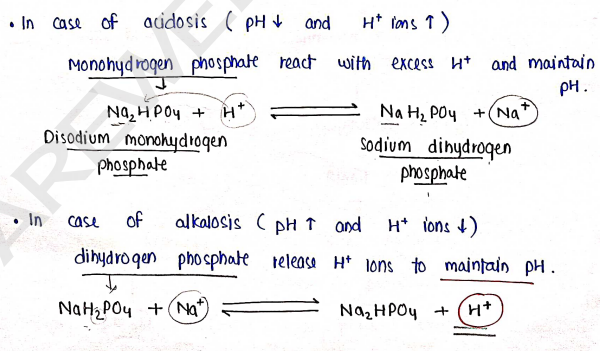 • In case of acidosis ( pH ↓ and H⁺ ions ↑ )
Monohydrogen phosphate react with excess H⁺ and maintain
pH.
Na₂HPO₄ + H⁺ ⇌ NaH₂PO₄ + Na⁺
Disodium monohydrogen phosphate
Sodium dihydrogen phosphate
• In case of alkalosis ( pH ↑ and H⁺ ions ↓ )
dihydrogen phosphate release H⁺ Ions to maintain pH.
NaH₂PO₄ + Na⁺ ⇌ Na₂HPO₄ + H⁺